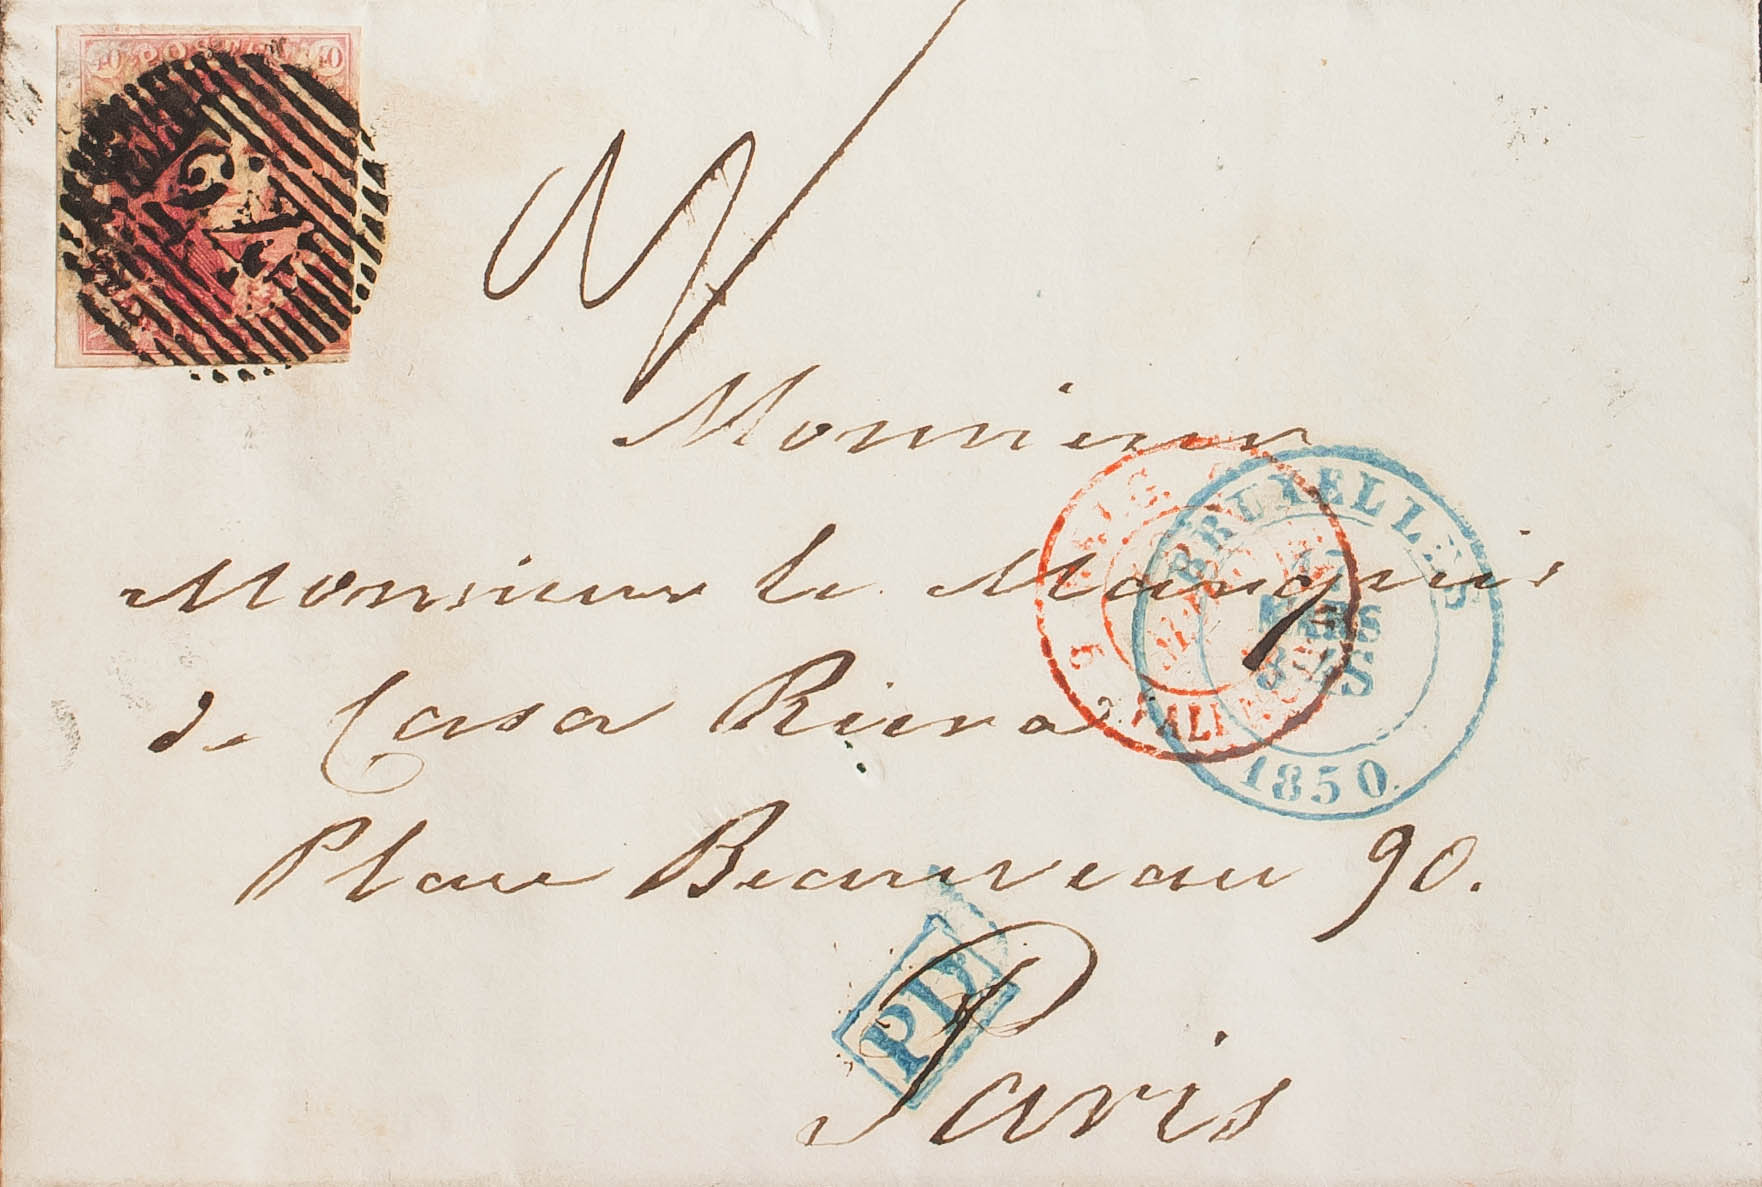 40 40
24
Monsieur
Monsieur le Marquis
de Casa Riera
Place Beauveau 90.
Paris
BRUXELLES
MARS
1850
PD